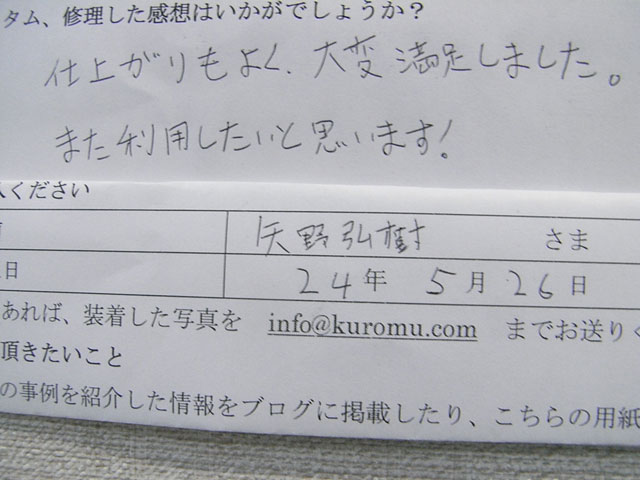 タム、修理した感想はいかがでしょうか？
仕上がりもよく、大変満足しました。
また利用したいと思います！
ください
矢野弘樹 さま
日 24年 5月 26日
あれば、装着した写真を info@kuromu.com までお送りく
頂きたいこと
の事例を紹介した情報をブログに掲載したり、こちらの用紙